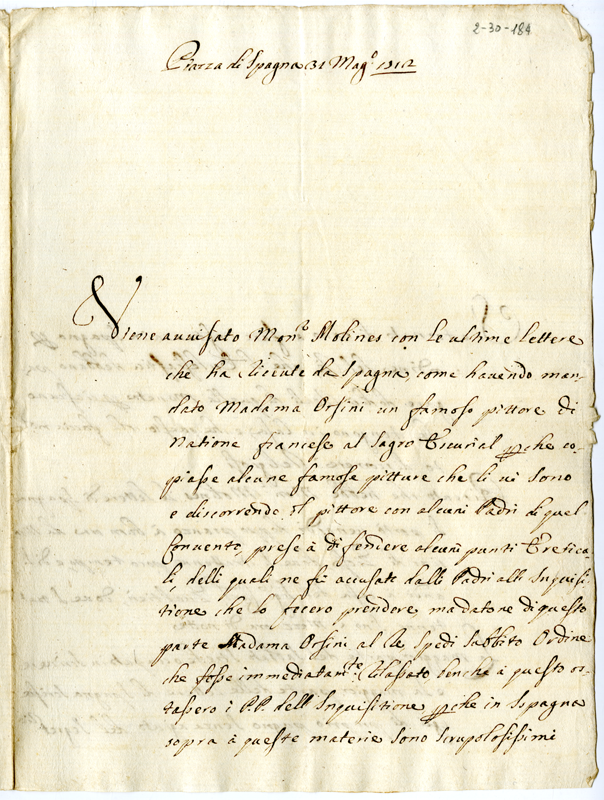 2-30-184
Piazza di Spagna 31 Mag.o 1712
Viene auuisato Mon.r Molines con le ultime lettere
che ha riceuute da Spagna come hauendo man-
dato Madama Orsini un famoso pittore di
natione francese al Sagro Escurial che co-
piasse alcune famose pitture che li ui sono
e discorrendo il pittore con alcuni Padri di quel
Conuento, prese à difendere alcuni punti Eretica-
li, delli quali ne fù accusato dalli Padri all Inquisi-
tione che lo fecero prendere, mà datone di questo
parte Madama Orsini al Rè spedi subbito Ordine
che fosse immediatam.te rilassato benche à questo os-
tassero i P.P. dell Inquisitione che in Spagna
sopra à queste materie sono scrupolosissimi